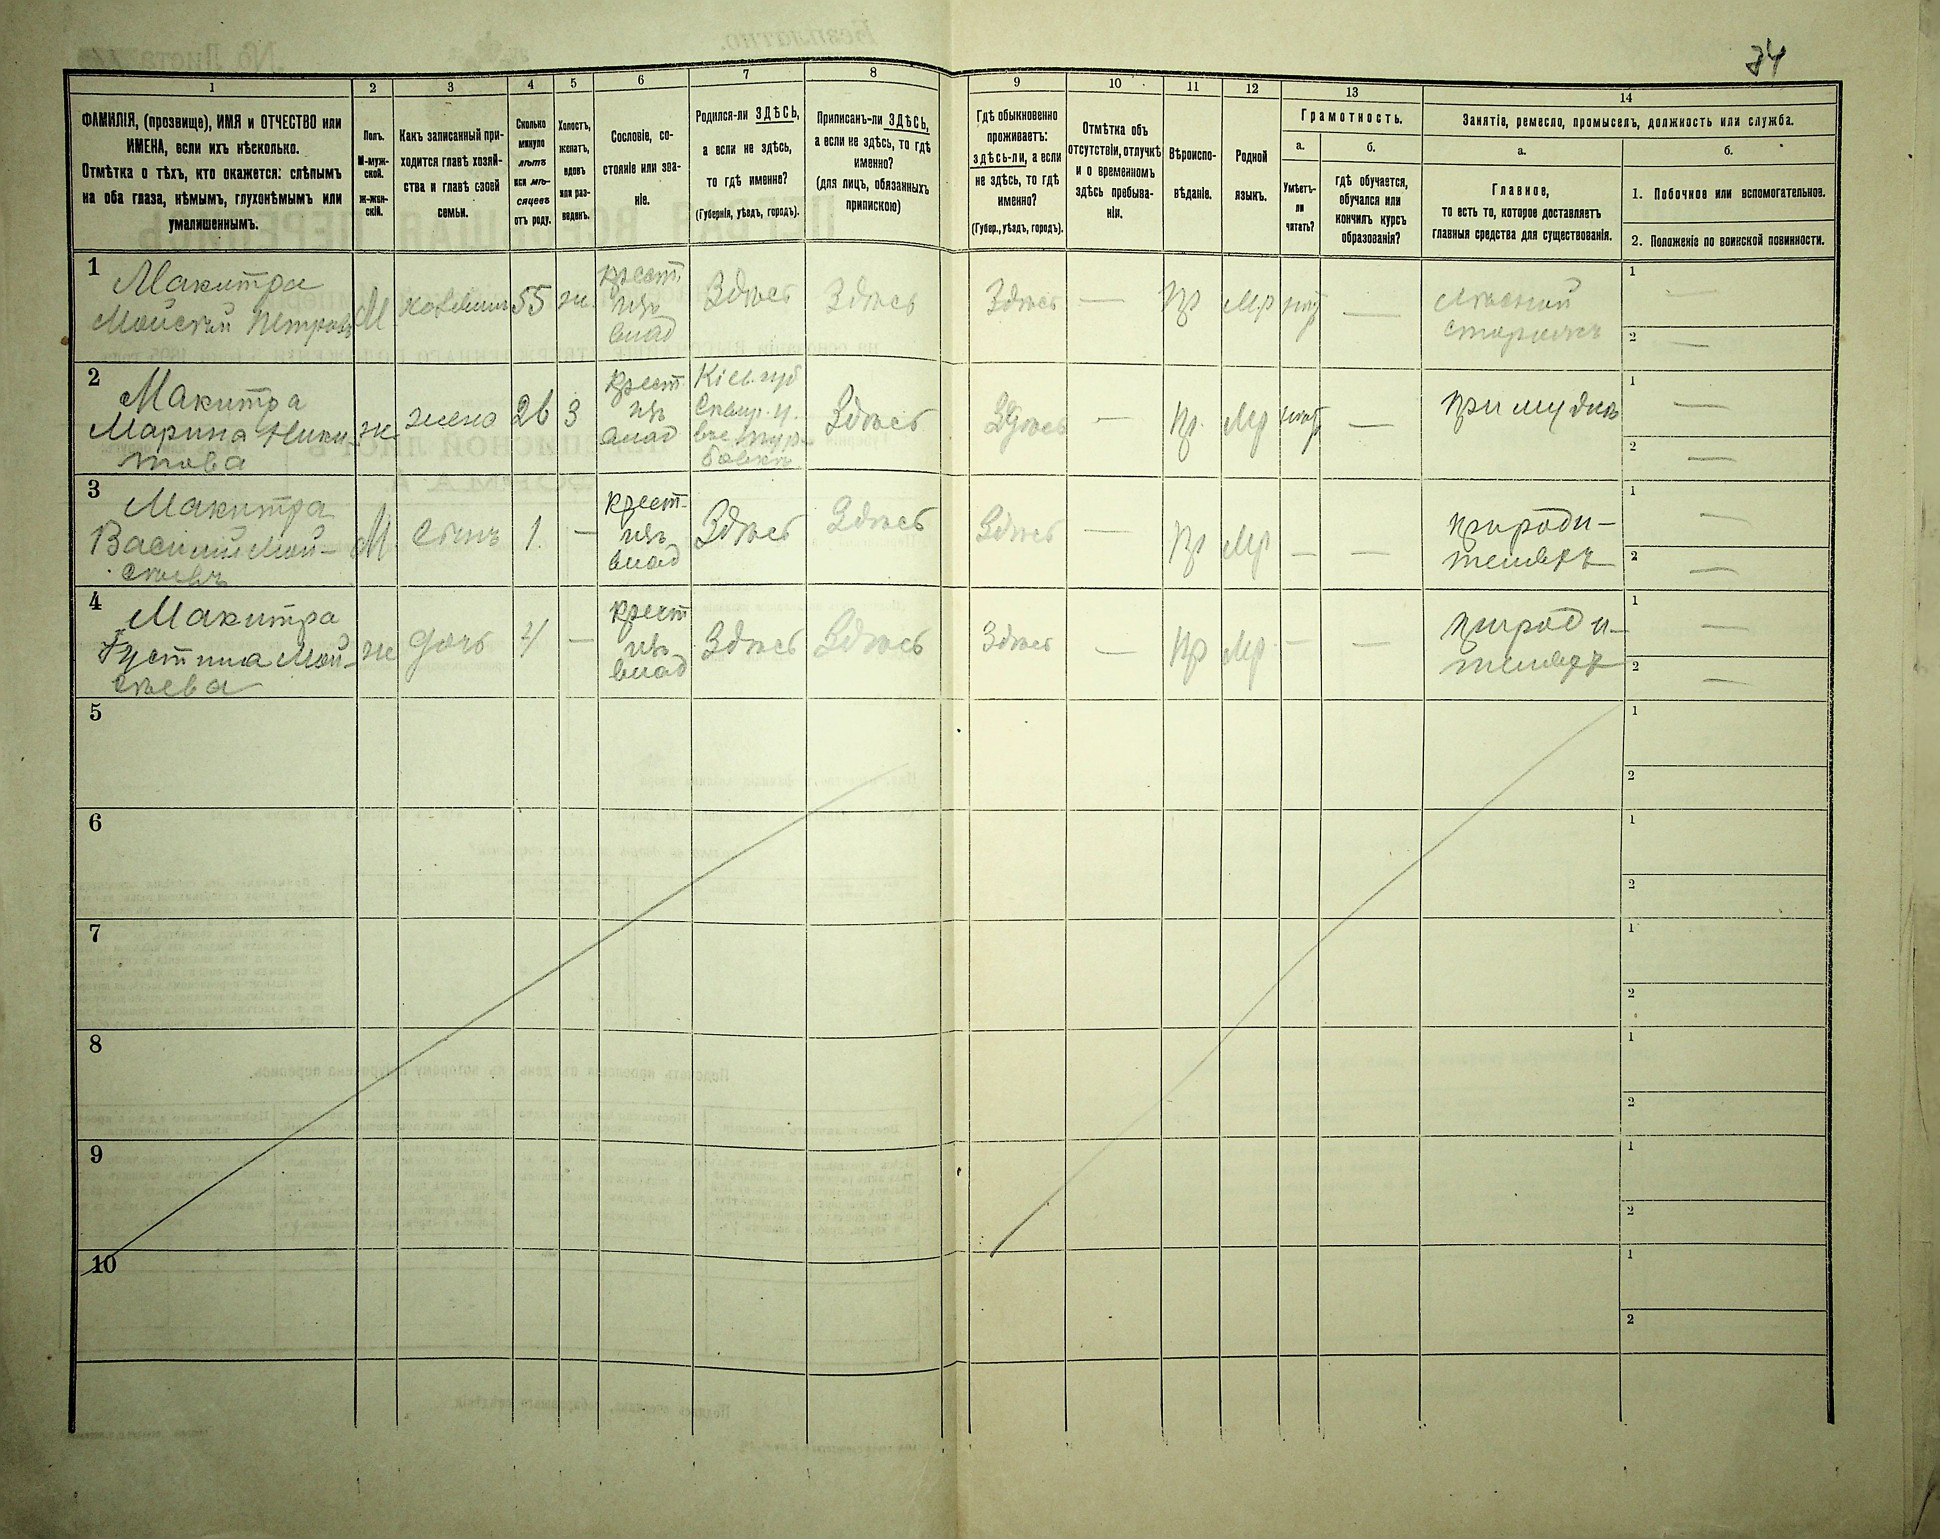 34
1
2
3
4
5
6
7
8
9
10
11
12
13
14
ФАМИЛІЯ, (прозвище), ИМЯ и ОТЧЕСТВО или
ИМЕНА, если ихъ нѣсколько.
Отмѣтка о тѣхъ, кто окажется: слѣпымъ
на оба глаза, нѣмымъ, глухонѣмымъ или
умалишеннымъ.
Полъ.
М-муж-
ской.
ж-жен-
скій.
Какъ записанный при-
ходится главѣ хозяй-
ства и главѣ своей
семьи.
Сколько
минуло
лѣтъ
или мѣ-
сяцевъ
отъ роду.
Холостъ,
женатъ,
вдовъ
или раз-
веденъ.
Сословіе, со-
стояніе или зва-
ніе.
Родился-ли ЗДѢСЬ,
а если не здѣсь,
то гдѣ именно?
(Губернія, уѣздъ, городъ).
Приписанъ-ли ЗДѢСЬ,
а если не здѣсь, то гдѣ
именно?
(для лицъ, обязанныхъ
припискою)
Гдѣ обыкновенно
проживаетъ:
здѣсь-ли, а если
не здѣсь, то гдѣ
именно?
(Губер., уѣздъ, городъ).
Отмѣтка объ
отсутствіи, отлучкѣ
и о временномъ
здѣсь пребыва-
ніи.
Вѣроиспо-
вѣданіе.
Родной
языкъ.
Грамотность.
а.
Умѣетъ-
ли
читать?
б.
гдѣ обучается,
обучался или
кончилъ курсъ
образованія?
Занятіе, ремесло, промыселъ, должность или служба.
а.
Главное,
то есть то, которое доставляетъ
главныя средства для существованія.
б.
1. Побочное или вспомогательное.
2. Положеніе по воинской повинности.
1
Макитра
Мойсей Петровъ
М
хозяинъ
55
ж.
крест.
изъ
влад
Здѣсь
Здѣсь
Здѣсь
—
Пр
Мр
нѣт
—
1 —
2 —
2
Макитра
Марина Ники-
това
ж
жена
26
З
крест
изъ
влад
Кіев. губ
Здѣсь
Здѣсь
—
Пр.
Мр
нѣт
—
При мужѣ
1 —
2 —
3
Макитра
Василий Мой-
сѣевъ
М.
Сынъ
1.
—
крест-
изъ
влад
Здѣсь
Здѣсь
Здѣсь
—
Пр
Мр
—
—
при роди-
теляхъ
1 —
2 —
4
Макитра
Густина Мой-
сѣева
ж
дочь
4
—
крест
изъ
влад
Здѣсь
Здѣсь
Здѣсь
—
Пр
Мр
—
—
при роди-
теляхъ
1 —
2 —
5
1
2
6
1
2
7
1
2
8
1
2
9
1
2
10
1
2